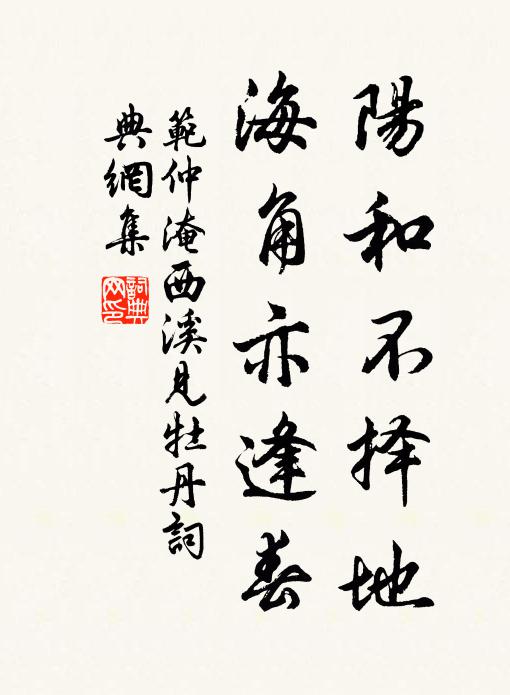 陽和不择地
海角亦逢春
範仲淹西溪見牡丹詞
典網集
詞典網印